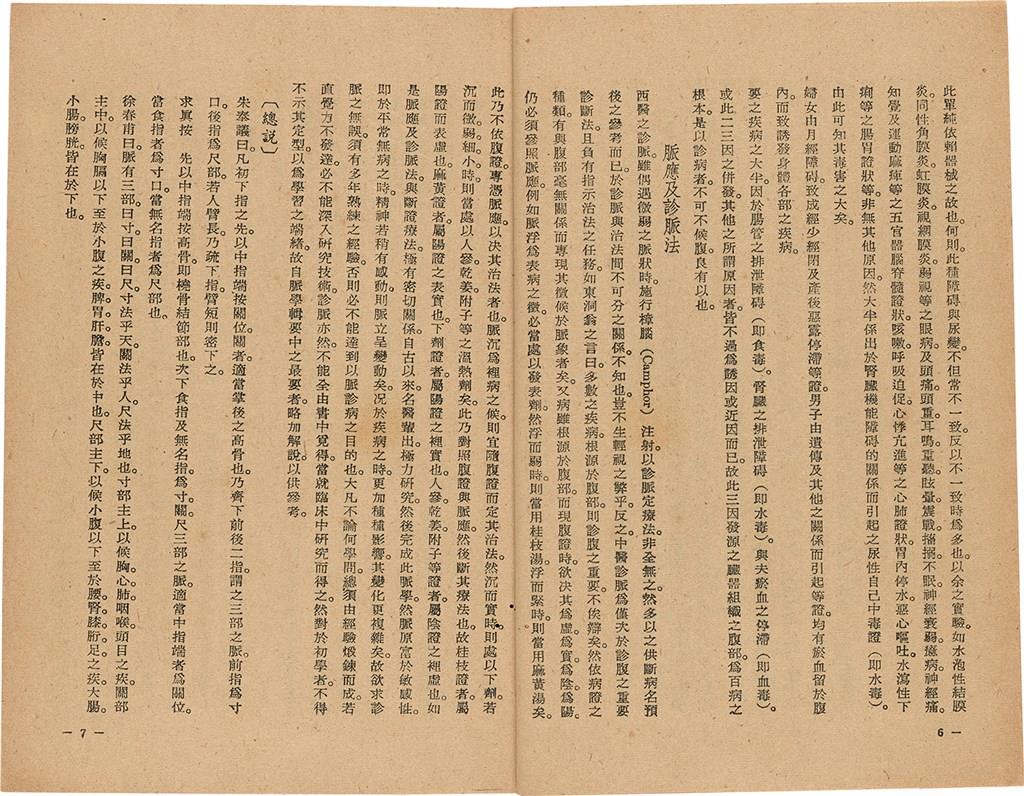 此單純依賴器械之故也何則此種障碍與尿變不但常不一致反以不一致時爲多也以余之實驗如水泡性結膜
炎同性角膜炎虹膜炎視網膜炎弱視等之眼病及頭痛頭重耳鳴重聽眩暈震戰搐搦不眠神經衰弱癔病神經痛
知覺及運動麻痺等之五官器腦脊髓證狀咳嗽呼吸迫促心悸亢進等之心肺證狀胃內停水惡心嘔吐水瀉性下
痢等之腸胃證狀等非無其他原因然大半係出於腎臟機能障碍的關係而引起之尿性自己中毒證（卽水毒）。
由此可知其毒害之大矣。
婦女由月經障碍致成經少經閉及產後惡露停滯等證男子由遺傳及其他之關係而引起等證均有瘀血留於腹
內而致誘發身體各部之疾病。
要之疾病之大半因於腸管之排泄障碍（卽食毒）。腎臟之排泄障碍（卽水毒）。與夫瘀血之停滯（卽血毒）。
或此二三因之倂發其他之所謂原因者皆不過爲誘因或近因而已故此三因發源之臟器組織之腹部爲百病之
根本是以診病者不可不候腹良有以也。
脈應及診脈法
西醫之診脈雖偶遇微弱之脈狀時施行樟腦（Camphor）注射以診脈定療法非全無之然多以之供斷病名預
後之參考而已於診脈與治法間不可分之關係不知也豈不生輕視之弊乎反之中醫診脈爲僅次於診腹之重要
診斷法且負有指示治法之任務如東洞翁之言曰多數之疾病根源於腹部則診腹之重要不俟辯矣然依病證之
種類有與腹部毫無關係而專現其徵候於脈象者矣又病雖根源於腹部而現腹證時欲決其爲虛爲實爲陰爲陽
仍必須參照脈應例如脈浮爲表病之徵必當處以發表劑然浮而弱時則當用桂枝湯浮而緊時則當用麻黃湯矣。
此乃不依腹證專憑脈應以決其治法者也脈沉爲裡病之候則宜隨腹證而定其治法然沉而實時則處以下劑若
沉而微弱細小時則當處以人參乾姜附子等之溫熱劑矣此乃對照腹證與脈應然後斷其療法也故桂枝證者屬
陽證而表虛也麻黃證者屬陽證之表實也下劑證者屬陽證之裡實也人參乾姜附子等證者屬陰證之裡虛也如
是脈應及診脈法與斷證療法極有密切關係自古以來名醫輩出極力研究然後完成此脈學然脈原富於敏感性。
卽於平常無病之時精神若稍有感動則脈立呈變動矣況於疾病之時更加種種影響其變化更複雜矣故欲求診
脈之無誤須有多年熟練之經驗否則必不能達到以脈診病之目的也大凡不論何學問總須由經驗煅鍊而成若
直覺力不發達必不能深入研究技術診脈亦然不能全由書中覓得當就臨床中研究而得之然對於初學者不得
不示其定型以爲學習之端緒故自脈學輯要中之最要者略加解說以供參考。
〔總說〕
朱奉議曰凡初下指之先以中指端按關位關者適當掌後之高骨也乃齊下前後二指謂之三部之脈前指爲寸
口後指爲尺部若人臂長乃疏下指臂短則密下之。
求眞按　先以中指端按高骨卽橈骨結節部也次下食指及無名指爲寸關尺三部之脈適當中指端者爲關位。
當食指者爲寸口當無名指者爲尺部也
徐春甫曰脈有三部曰寸曰關曰尺寸法乎天關法乎人尺法乎地也寸部主上以候胸心肺咽喉頭目之疾關部
主中以候胸膈以下至於小腹之疾脾胃肝膽皆在於中也尺部主下以候小腹以下至於腰腎膝胻足之疾大腸
小腸膀胱皆在於下也。
6 —
— 7 —